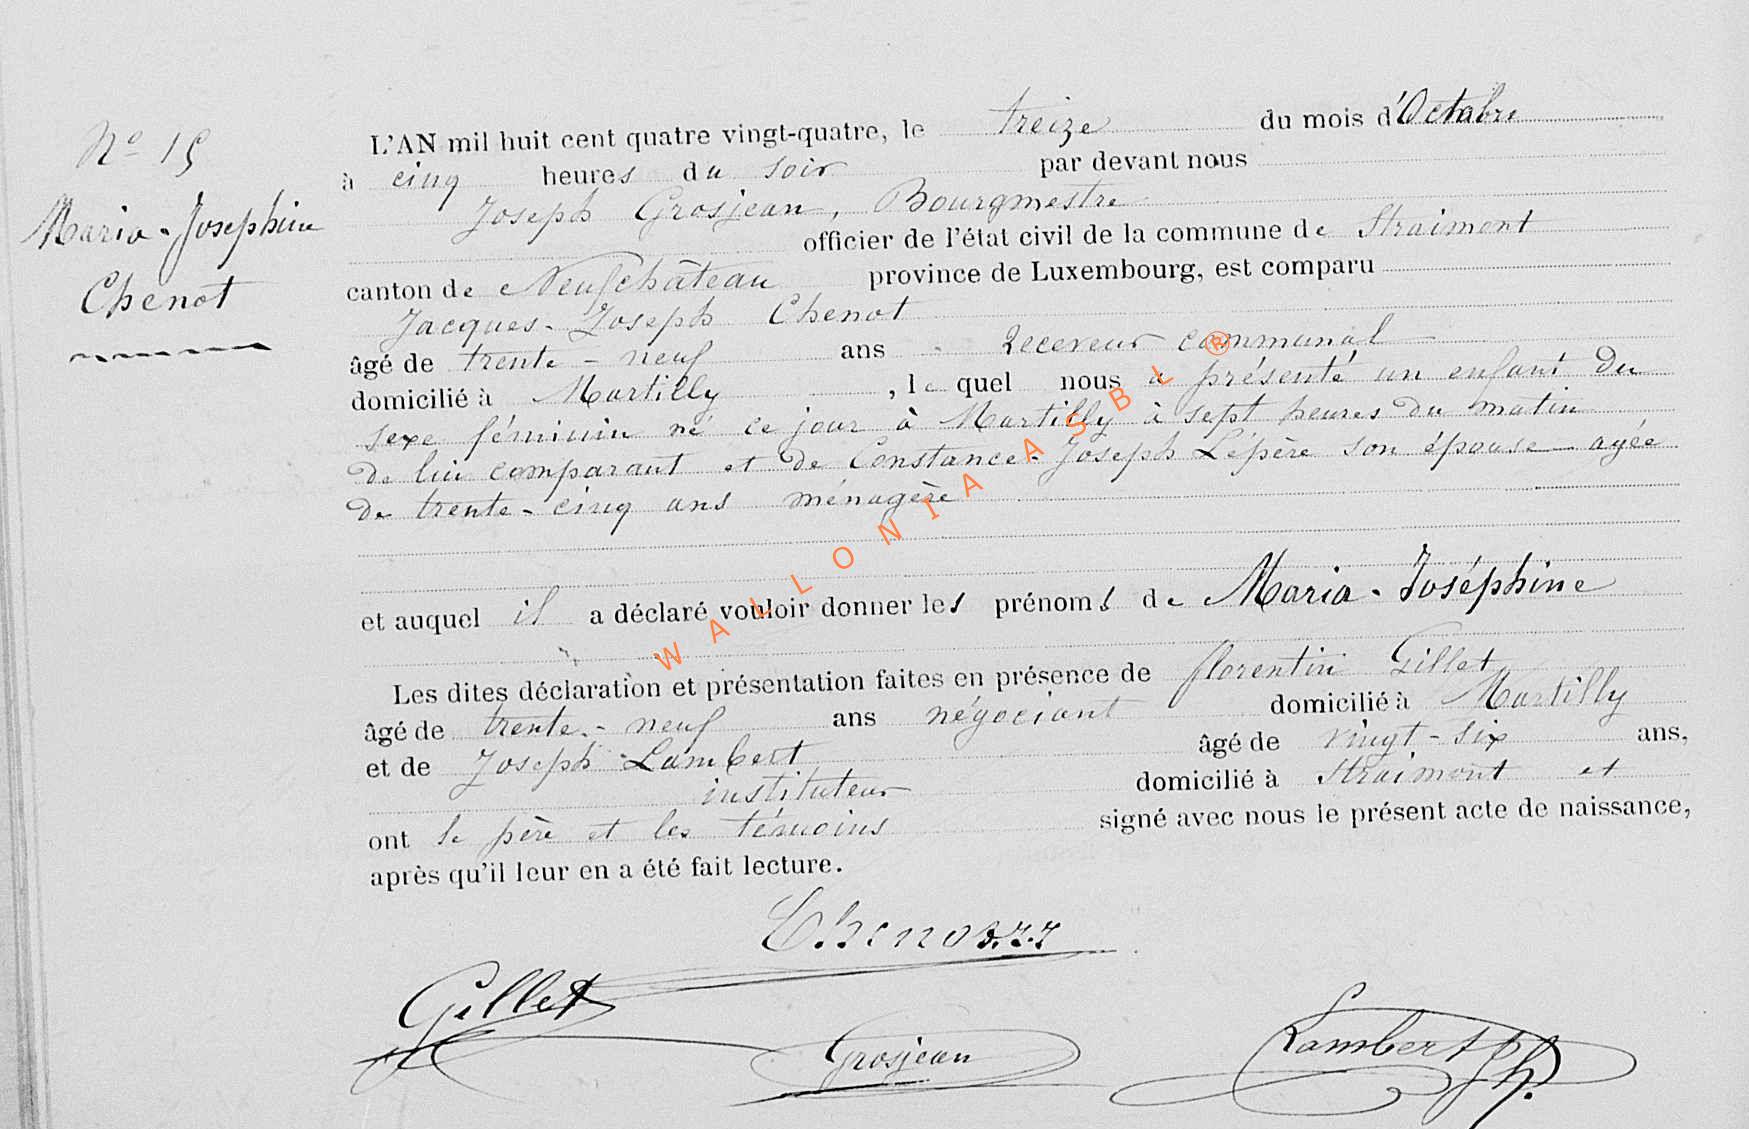 Nº 15
Maria-Josephine
Chenot
L'AN mil huit cent quatre vingt-quatre, le treize du mois d'Octobre
à cinq heures du soir par devant nous
Joseph Grosjean, Bourgmestre
officier de l'état civil de la commune de Straimont
canton de Neufchâteau province de Luxembourg, est comparu
Jacques-Joseph Chenot
âgé de trente-neuf ans Receveur communal
domicilié à Martilly, le quel nous a présenté un enfant du
sexe féminin né ce jour à Martilly à sept heures du matin
de lui comparant et de Constance-Joseph Lépère son épouse agée
de trente-cinq ans ménagère
et auquel il a déclaré vouloir donner les prénoms de Maria-Joséphine
Les dites déclaration et présentation faites en présence de florentin Gillet
âgé de trente-neuf ans négociant domicilié à Martilly
et de Joseph Lambert âgé de vingt-six ans,
instituteur domicilié à Straimont et
ont le père et les témoins signé avec nous le présent acte de naissance,
après qu'il leur en a été fait lecture.
Chenot J.J
Gillet
Grosjean
Lambert Jph.
WALLONIA ASBL ®